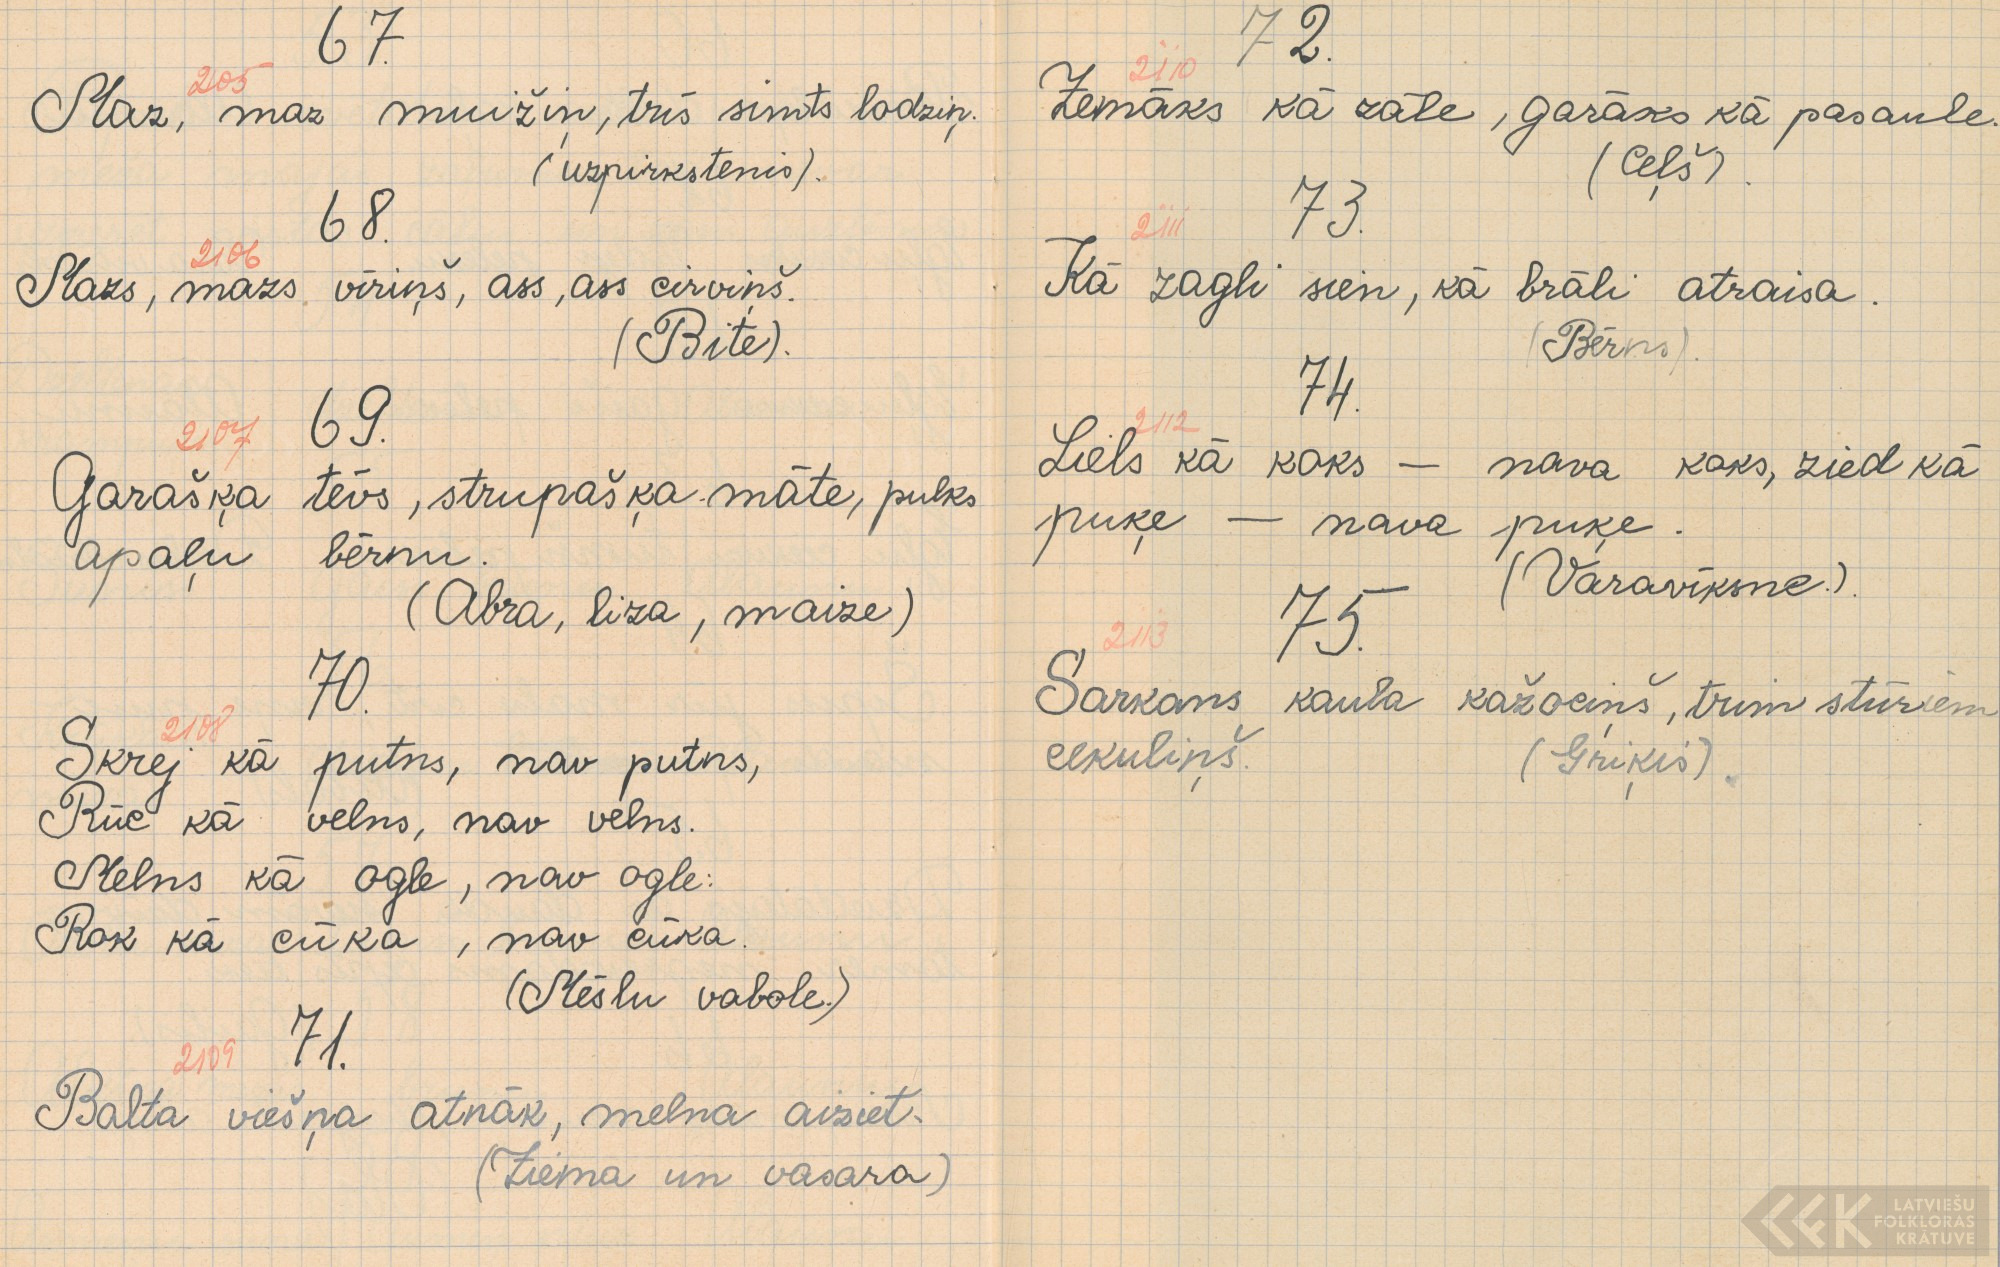 67.
2105
Maz, maz muižiņ, trīs simts lodziņ.
(uzpirkstenis).
68.
2106
Mazs, mazs vīriņš, ass, ass cirviņš.
(Bite).
69.
2107
Garašķa tēvs, strupašķa māte, pulks
apaļu bērnu.
(Abra, liza, maize)
70.
2108
Skrej kā putns, nav putns,
Rūc kā velns, nav velns.
Melns kā ogle, nav ogle:
Rok kā cūka, nav cūka.
(Mēslu vabole.)
71.
2109
Balta viešņa atnāk, melna aiziet.
(Ziema un vasara)
72.
2110
Zemāks kā zāle, garāks kā pasaule.
(Ceļš).
73.
2111
Kā zagli sien, kā brāli atraisa.
(Bērns).
74.
2112
Liels kā koks — nava koks, zied kā
puķe — nava puķe.
(Varavīksne.).
75.
2113
Sarkans kaula kažociņš, trim stūriem
cekuliņš. (Griķis).
LATVIEŠU
FOLKLORAS
KRĀTUVE